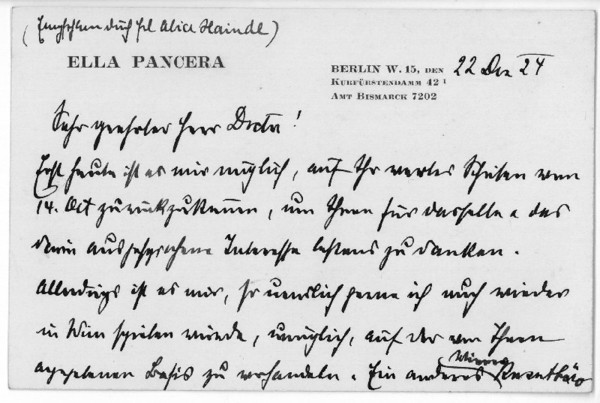 (Empfohlen durch Frl Alice Haindl)
ELLA PANCERA
BERLIN W. 15, DEN 22 Dez 24
KURFÜRSTENDAMM 42 I
AMT BISMARCK 7202
Sehr geehrter Herr Doctor!
Erst heute ist es mir möglich, auf Ihr wertes Schreiben vom
14. Oct zurückzukommen, um Ihnen für dasselbe u das
darin ausgesprochene Interesse bestens zu danken.
Allerdings ist es mir, so gerne ich auch wieder
in Wien spielen würde, unmöglich, auf der von Ihnen
angegebenen Basis zu verhandeln. Ein anderes Wiener Konzertbüro